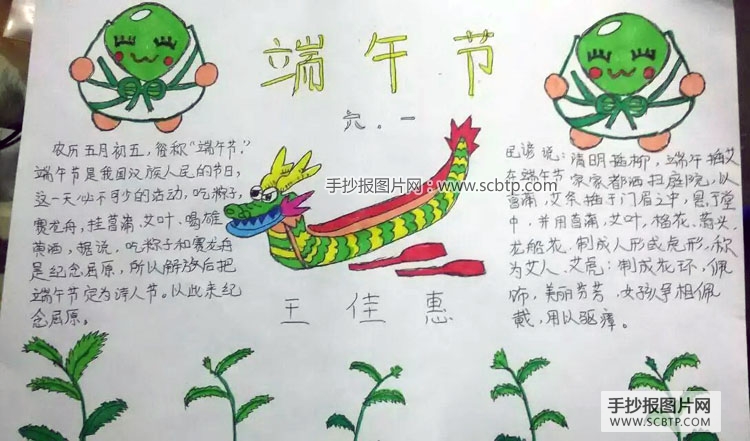 端午节
六.一
农历五月初五,俗称“端午节”,
端午节是我国汉族人民的节日,
这一天必不可少的活动,吃粽子,
赛龙舟,挂菖蒲、艾叶、喝雄
黄酒,据说,吃粽子和赛龙舟
是纪念屈原,所以解放后把
端午节定为诗人节。以此来纪
念屈原。
手抄报图片网:www.scbtp.com
王佳惠
民谚说:清明插柳,端午插艾
在端午节家家都洒扫庭院,以
菖蒲,艾条插于门眉之中,悬于堂
中,并用菖蒲,艾叶,榴花、蒜头、
龙船花,制成人形或虎形,称
为艾人、艾虎;制成花环,佩
饰,美丽芬芳,女孩争相佩
戴,用以驱瘴。
手抄报图片网
WWW.SCBTP.COM